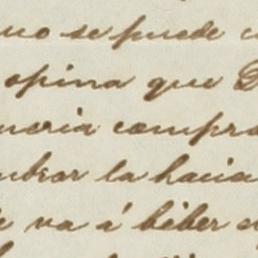 no se puede
opina que D
neria compra
mbrar la hacia
va á biber